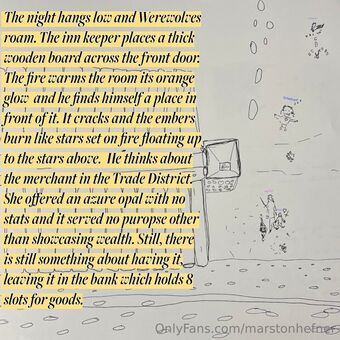 The night hangs low and Werewolves
roam. The inn keeper places a thick
wooden board across the front door.
The fire warms the room its orange
glow and he finds himself a place in
front of it. It cracks and the embers
burn like stars set on fire floating up
to the stars above. He thinks about
the merchant in the Trade District.
She offered an azure opal with no
stats and it served no puropse other
than showcasing wealth. Still, there
is still something about having it,
leaving it in the bank which holds 8
slots for goods.
OnlyFans.com/marstonhefner